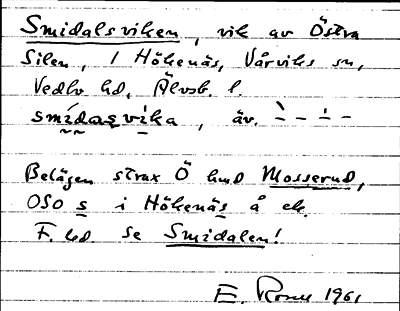 Smidalsviken, vik av Östra
Silen, i Hökenäs, Vårviks sn,
Vedbo hd, Älvsb. l.
smidasvika, äv. – – –
Belägen strax Ö hmd Mosserud,
OSO s i Hökenäs å ek.
F.led se Smidalen!
E. 1961